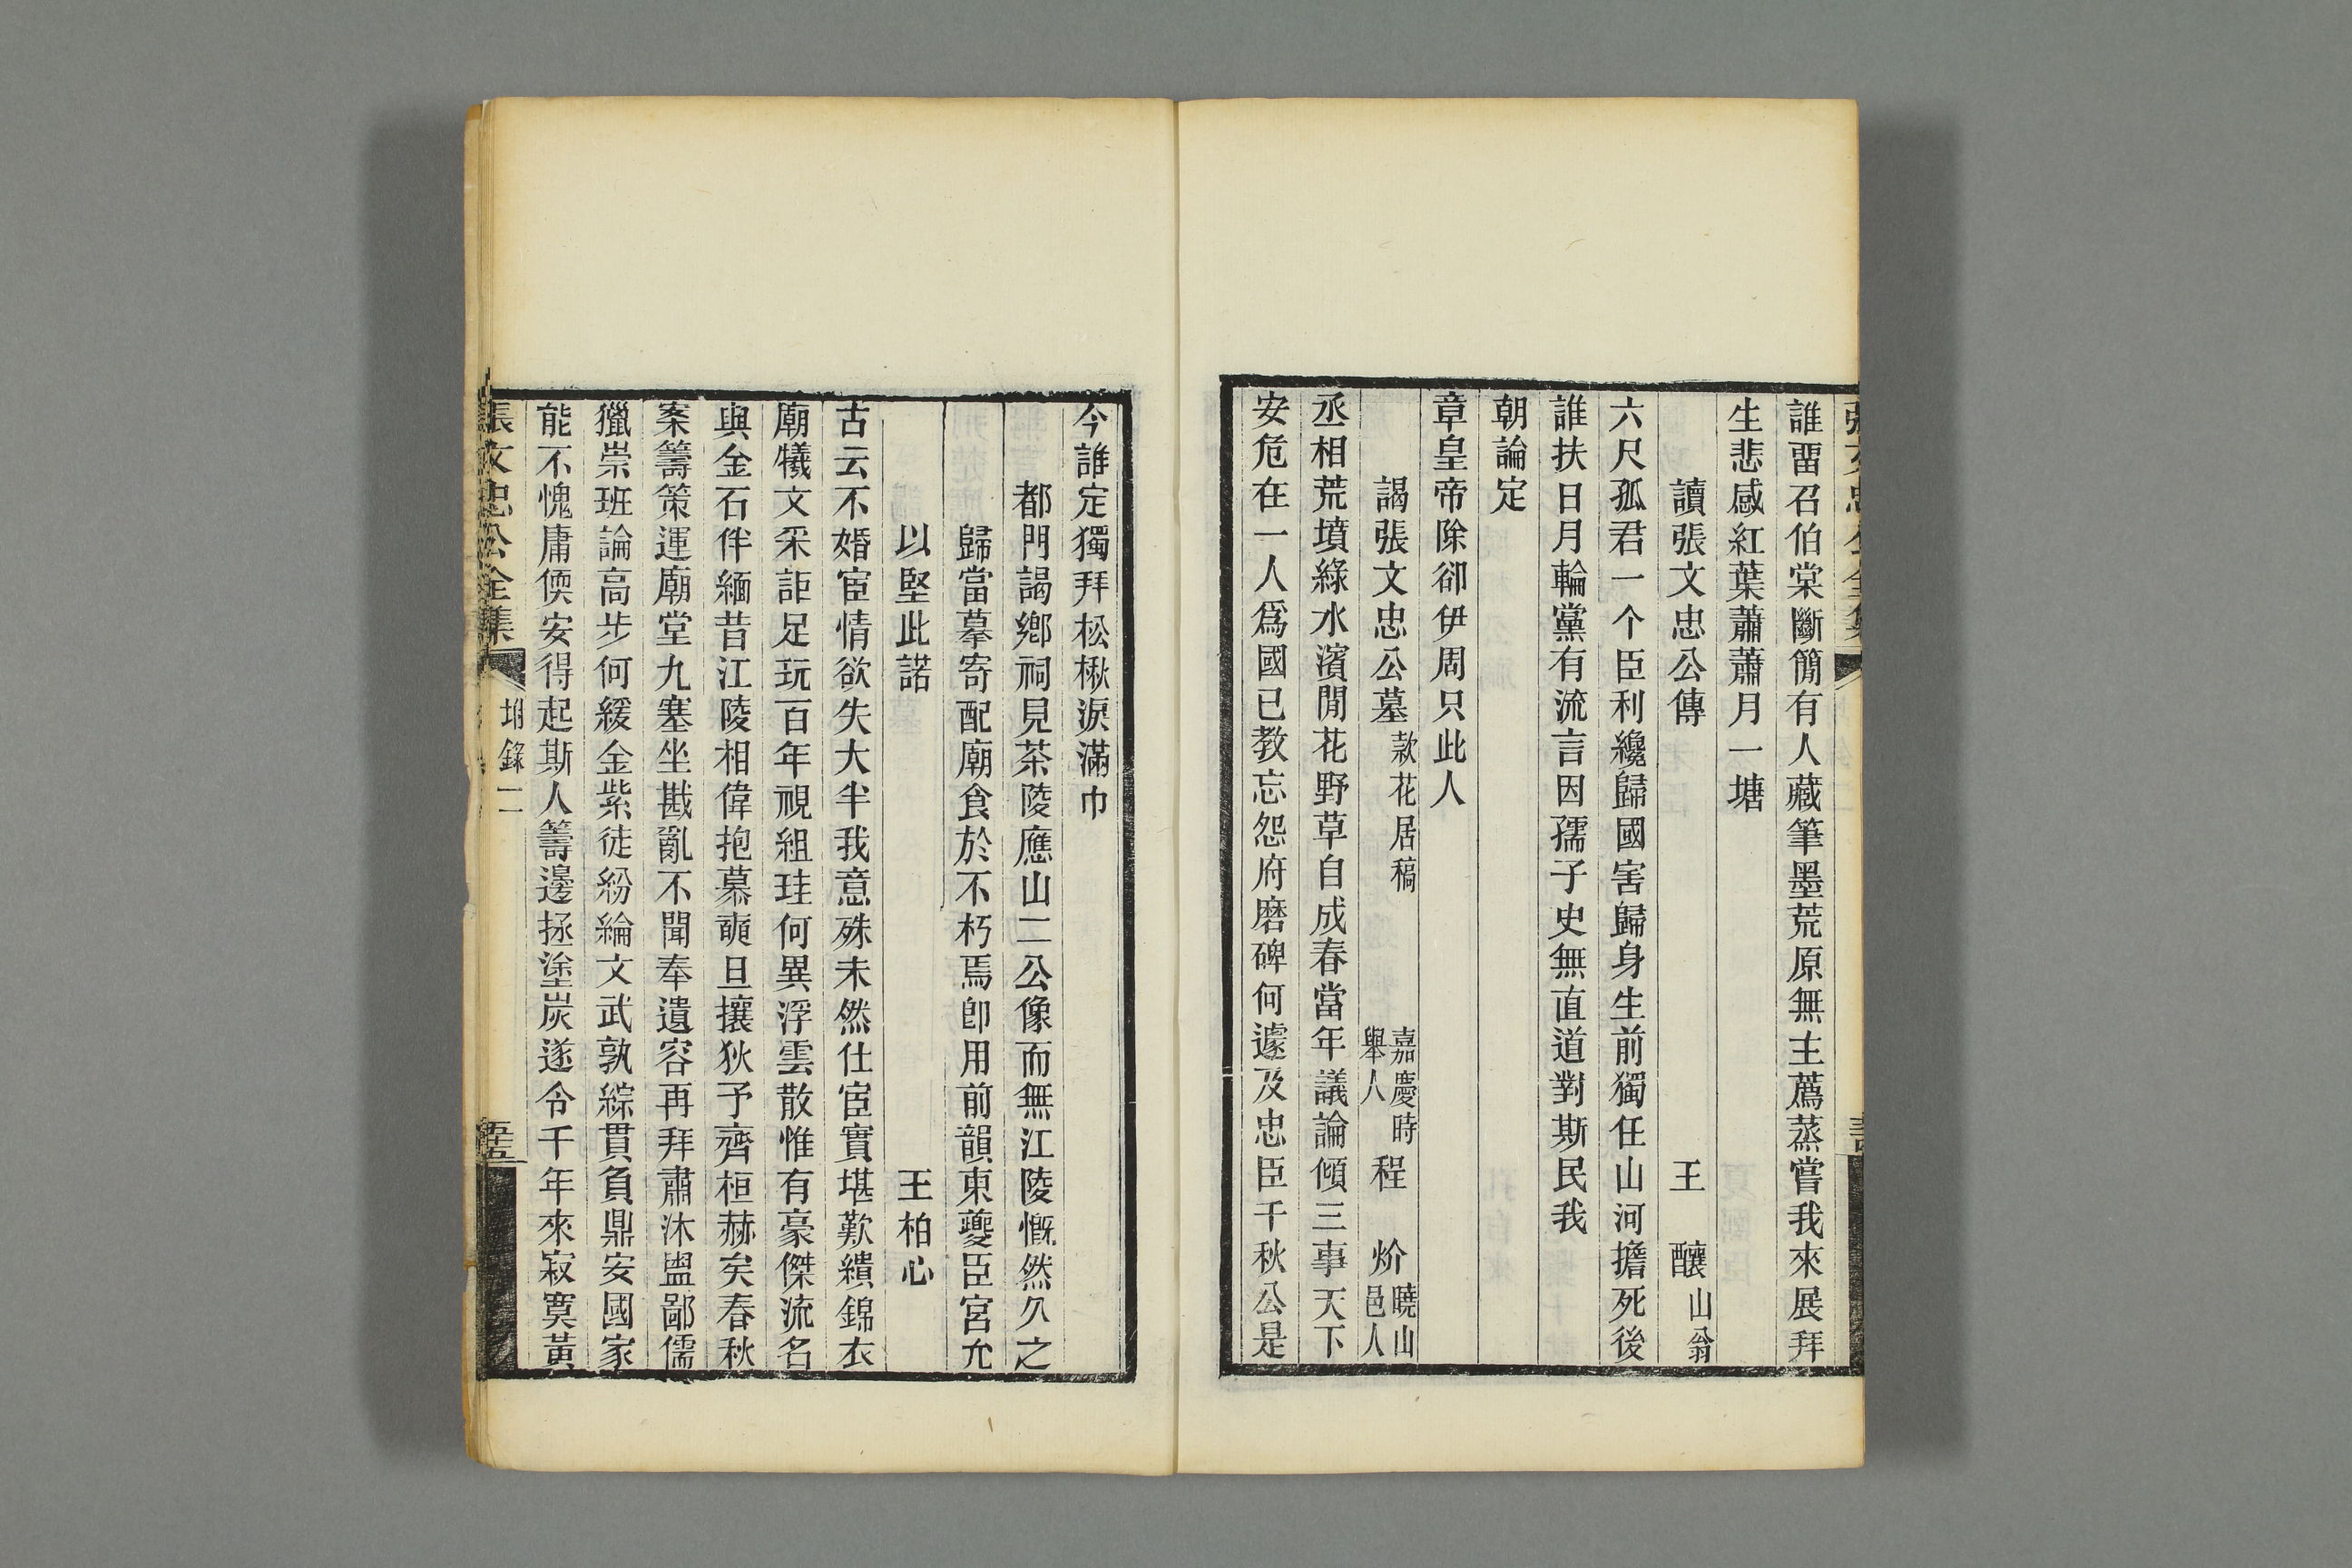 誰畱召伯棠斷簡有人藏筆墨荒原無主薦蒸嘗我來展拜
生悲感紅葉蕭蕭月一塘
讀張文忠公傳 王 釀 山翁
六尺孤君一个臣利纔歸國害歸身生前獨任山河擔死後
誰扶日月輪黨有流言因孺子史無直道對斯民我
朝論定
章皇帝除卻伊周只此人
謁張文忠公墓 款花居稿 嘉慶時舉人 程 炌 曉山邑人
丞相荒墳綠水濱閒花野草自成春當年議論傾三事天下
安危在一人爲國已教忘怨府磨碑何遽及忠臣千秋公是
今誰定獨拜松楸淚滿巾
都門謁鄉祠見茶陵應山二公像而無江陵慨然久之
歸當摹寄配廟食於不朽焉卽用前韻東夔臣宮允
以堅此諾 王柏心
古云不婚宦情欲失大半我意殊未然仕宦實堪歎繢錦衣
廟犧文采詎足玩百年視組珪何異浮雲散惟有豪傑流名
與金石伴緬昔江陵相偉抱慕奭旦攘狄予齊桓赫矣春秋
案籌策運廟堂九塞坐戡亂不聞奉遺容再拜肅沐盥鄙儒
獵崇班論高步何緩金紫徒紛綸文武孰綜貫負鼎安國家
能不愧庸偄安得起斯人籌邊拯塗炭遂令千年來寂寞黃
張文忠公全集 坿錄二 五十五